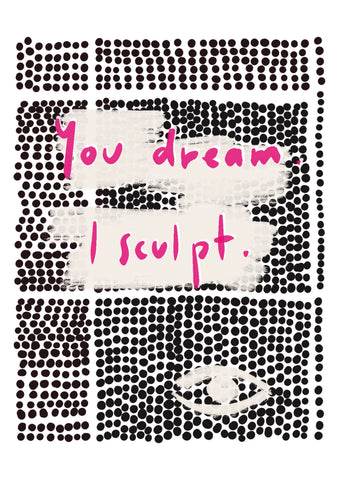 You dream.
I sculpt.